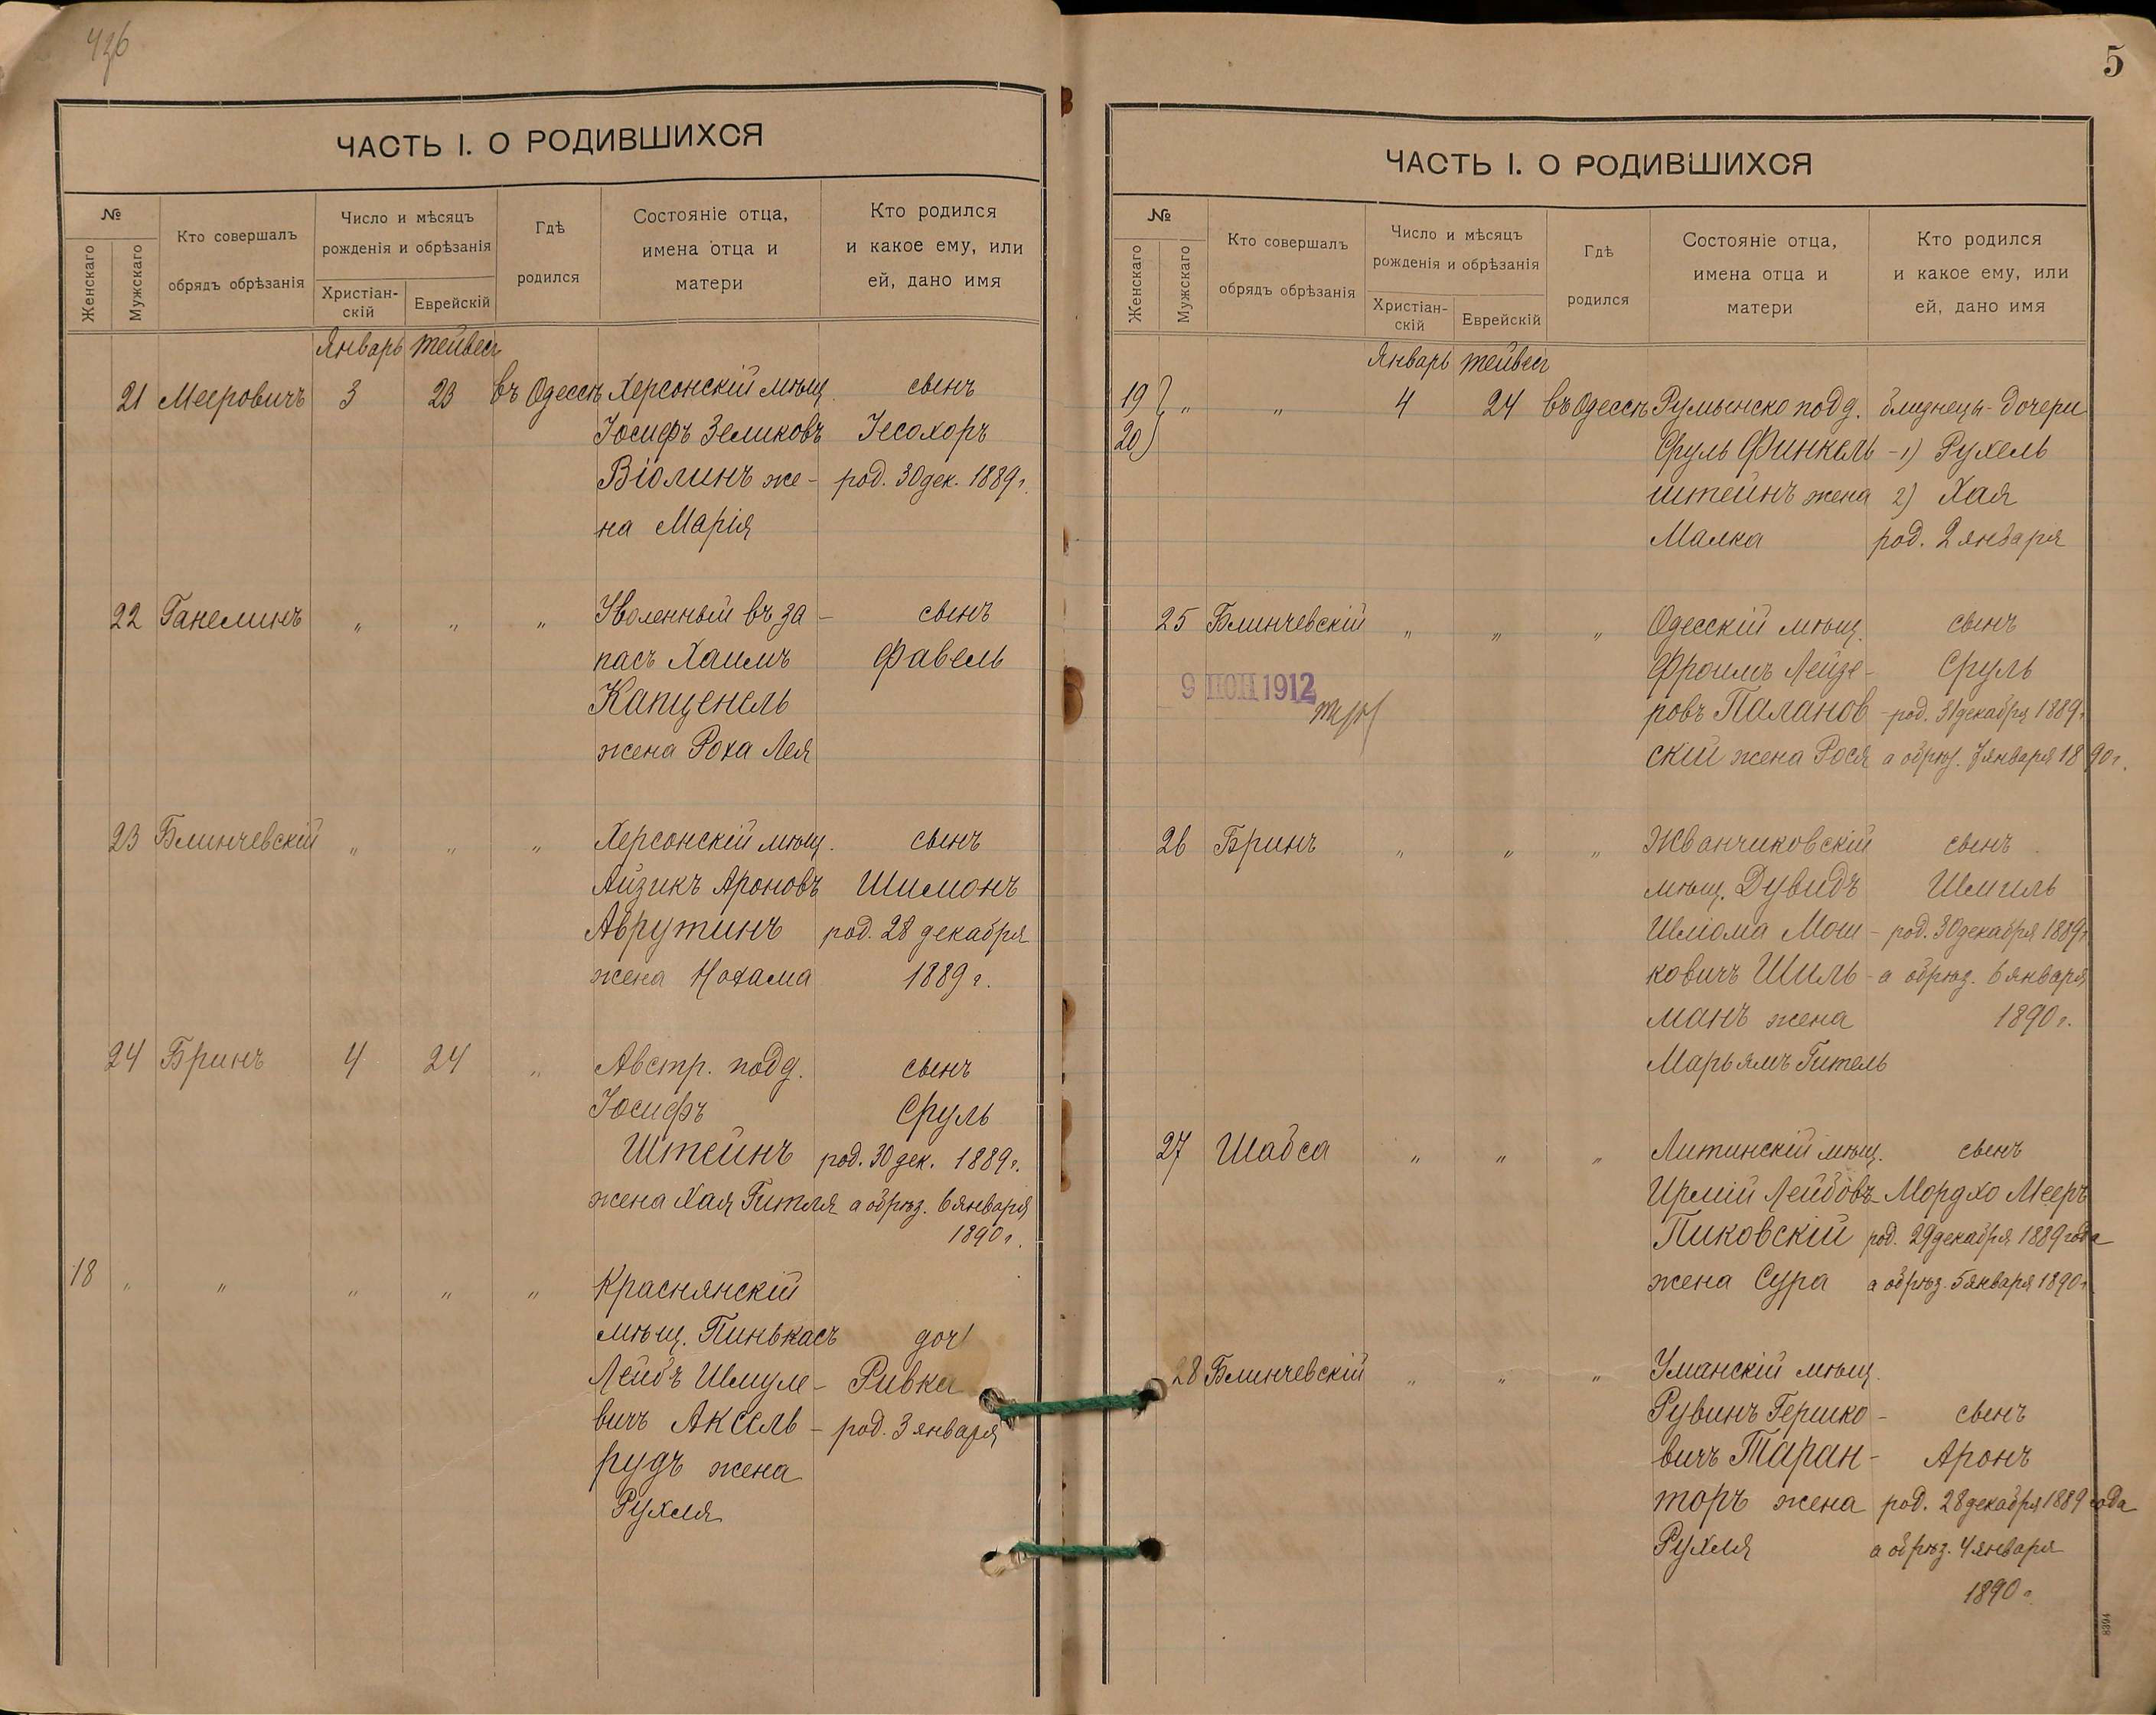 426
ЧАСТЬ I. О РОДИВШИХСЯ
№
Женскаго
Мужскаго
Кто совершалъ
обрядъ обрѣзанія
Число и мѣсяцъ
рожденія и обрѣзанія
Христіан-
скій
Еврейскій
Гдѣ
родился
Состояніе отца,
имена отца и
матери
Кто родился
и какое ему, или
ей, дано имя
Январь Тейвесъ
21 Мееровичъ 3 23 въ Одессѣ Херсонскій мѣщ. сынъ
Іосифъ Зеликовъ Іесохоръ
Віолинъ же- род. 30 дек. 1889 г.
на Марія
22 Ганелинъ " " " Уволенный въ за- сынъ
пасъ Хаимъ Фавель
Капценель
жена Роха Лея
23 Блинчевскій " " " Херсонскій мѣщ. сынъ
Айзикъ Ароновъ Шимонъ
Аврутинъ род. 28 декабря
жена Нохама 1889 г.
24 Бринъ 4 24 " Австр. подд. сынъ
Іосифъ Сруль
Штейнъ род. 30 дек. 1889 г.
жена Хая Гитля а обрѣз. 6 января
1890 г.
18 " " " " " Краснянскій
мѣщ. Пинькасъ дочь
Лейбъ Шмуле- Ривка
вичъ Аксель- род. 3 января
рудъ жена
Рухля
5
ЧАСТЬ I. О РОДИВШИХСЯ
№
Женскаго
Мужскаго
Кто совершалъ
обрядъ обрѣзанія
Число и мѣсяцъ
рожденія и обрѣзанія
Христіан-
скій
Еврейскій
Гдѣ
родился
Состояніе отца,
имена отца и
матери
Кто родился
и какое ему, или
ей, дано имя
Январь Тейвесъ
19 " " 4 24 въ Одессѣ Румынско подд. близнецы-дочери
20 Сруль Финкель- 1) Рухель
штейнъ жена 2) Хая
Малка род. 2 января
25 Блинчевскій " " " Одесскій мѣщ. сынъ
Фроимъ Лейзе- Сруль
9 ІЮН 1912
ровъ Паланов- род. 31 декабря 1889 г.
скій жена Рося а обрѣз. 7 января 1890 г.
26 Бринъ " " " Жванчиковскій сынъ
мѣщ. Дувидъ Шмиль
Шліома Мош- род. 30 декабря 1889 г.
ковичъ Шиль- а обрѣз. 6 января
манъ жена 1890 г.
Марьямъ Гитель
27 Шабса " " " Литинскій мѣщ. сынъ
Ирмій Лейбовъ Мордхо Мееръ
Пиковскій род. 29 декабря 1889 года
жена Сура а обрѣз. 5 января 1890 г.
28 Блинчевскій " " " Уманскій мѣщ.
Рувинъ Гершко- сынъ
вичъ Таран- Аронъ
торъ жена род. 28 декабря 1889 года
Рухля а обрѣз. 4 января
1890 г.
8394